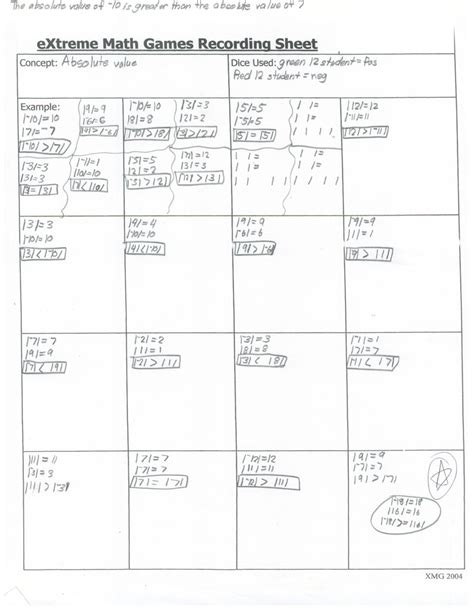 The absolute value of -10 is greater than the absolute value of 7
eXtreme Math Games Recording Sheet
Concept: Absolute value
Dice Used: green 12 student = Pos
Red 12 student = neg
Example:
|-10|=10
|7|=-7
|-10|>|7|
|9|=9
|-6|=6
|9|>|-6|
|-10|=10
|8|=8
|-10|>|8|
|-3|=3
|2|=2
|-3|>|2|
|5|=5
|-5|=5
|5|=|-5|
| |=
| |=
| | | |
|12|=12
|-11|=11
|12|>|-11|
|-3|=3
|3|=3
|-3|=|3|
|-1|=1
|10|=10
|-1|<|10|
|-5|=5
|2|=2
|-5|>|2|
|-3|=3
| |=
| |=
| |=
| |=
|3|=3
|-10|=10
|3|<|-10|
|9|=4
|-10|=10
|4|<|-10|
|9|=9
|-6|=6
|9|>|-6|
|-9|=9
|1|=1
|-9|>|1|
|-7|=7
|9|=9
|-7|<|9|
|-2|=2
|1|=1
|-2|>|1|
|-3|=3
|8|=8
|-3|<|8|
|-1|=1
|7|=7
|-1|<|7|
|11|=11
|-3|=3
|11|>|-3|
|7|=7
|-7|=7
|7|=|-7|
|-12|=12
|11|=11
|-12|>|11|
|9|=9
|-7|=7
|9|>|-7|
|-18|=18
|16|=16
|-18|>|16|
XMG 2004